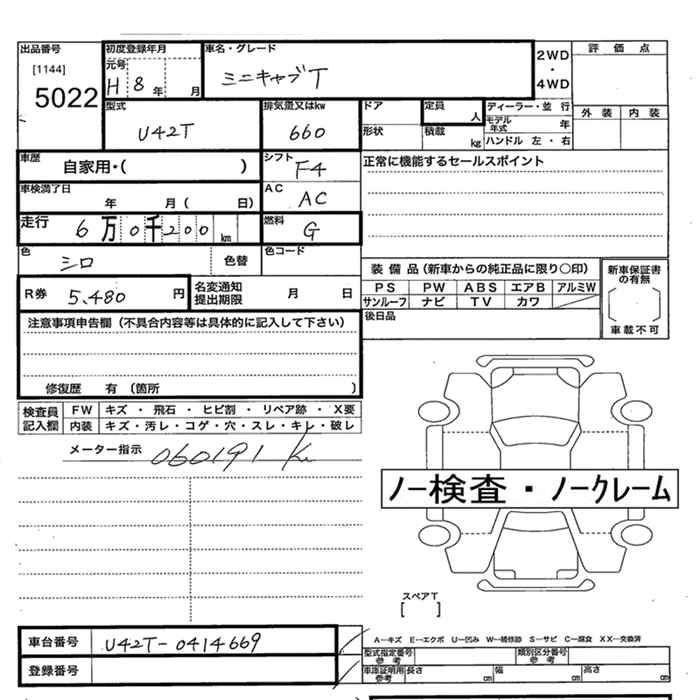 出品番号
[1144]
5022
初度登録年月
元号
H 8 年 月
車名・グレード
ミニキャブT
2WD
・
4WD
評価点
外装 内装
型式
U42T
排気量又はkw
660
ドア
形状
定員
人
積載
kg
ディーラー・並行
モデル年式 年
ハンドル 左・右
車歴
自家用・( )
シフト
F4
正常に機能するセールスポイント
車検満了日
年 月( 日)
AC
AC
走行
6万0千200km
燃料
G
色
シロ
色替
色コード
装備品(新車からの純正品に限り○印)
PS PW ABS エアB アルミW
サンルーフ ナビ TV カワ
後日品
新車保証書の有無
車載不可
R券
5,480 円
名変通知提出期限 月 日
注意事項申告欄(不具合内容等は具体的に記入して下さい)
修復歴 有(箇所 )
検査員記入欄
FW キズ・飛石・ヒビ割・リペア跡・X要
内装 キズ・汚レ・コゲ・穴・スレ・キレ・破レ
メーター指示
060191 Km
ノー検査・ノークレーム
スペアT
[ ]
A—キズ E—エクボ U—凹み W—補修跡 S—サビ C—腐食 XX—交換済
車台番号
U42T-0414669
登録番号
型式指定番号 参考
類別区分番号 参考
車庫証明用 参考
長さ cm
幅 cm
高さ cm